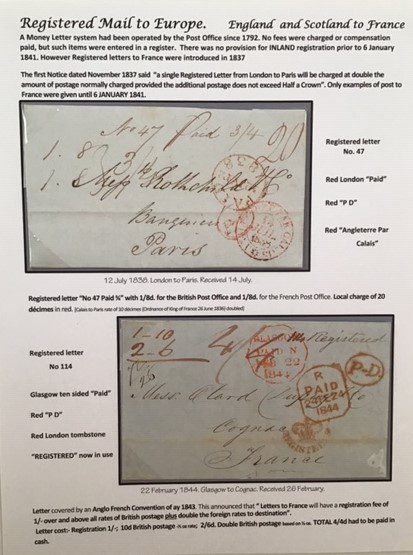 Registered Mail to Europe. England and Scotland to France
A Money Letter system had been operated by the Post Office since 1792. No fees were charged or compensation
paid, but such items were entered in a register. There was no provision for INLAND registration prior to 6 January
1841. However Registered letters to France were introduced in 1837
The first Notice dated November 1837 said "a single Registered Letter from London to Paris will be charged at double the
amount of postage normally charged provided the additional postage does not exceed Half a Crown". Only examples of post to
France were given until 6 JANUARY 1841.
No 47 Paid 3/4 20
1. 8
1. 8
Rothschild
Banquiers
Paris
Registered letter
No. 47
Red London "Paid"
Red "P D"
Red "Angleterre Par
Calais"
12 July 1838. London to Paris. Received 14 July.
Registered letter "No 47 Paid ¾" with 1/8d. for the British Post Office and 1/8d. for the French Post Office. Local charge of 20
décimes in red. (Calais to Paris rate of 10 décimes (Ordnance of King of France 26 June 1836) doubled)
Registered letter
No 114
Glasgow ten sided "Paid"
Red "P D"
Red London tombstone
"REGISTERED" now in use
1-10
2-6
4/4
Registered
GLASGOW
PAID N
FEB 22
1844
P-D
R
PAID
24
1844
Mess. Otard Dupuy & Co
Cognac
France
REGISTERED
22 February 1844. Glasgow to Cognac. Received 26 February.
Letter covered by an Anglo French Convention of ay 1843. This announced that " Letters to France will have a registration fee of
1/- over and above all rates of British postage plus double the foreign rates to destination".
Letter cost:- Registration 1/-; 10d British postage -½ oz rate; 2/6d. Double British postage based on ¼ oz. TOTAL 4/4d had to be paid in
cash.